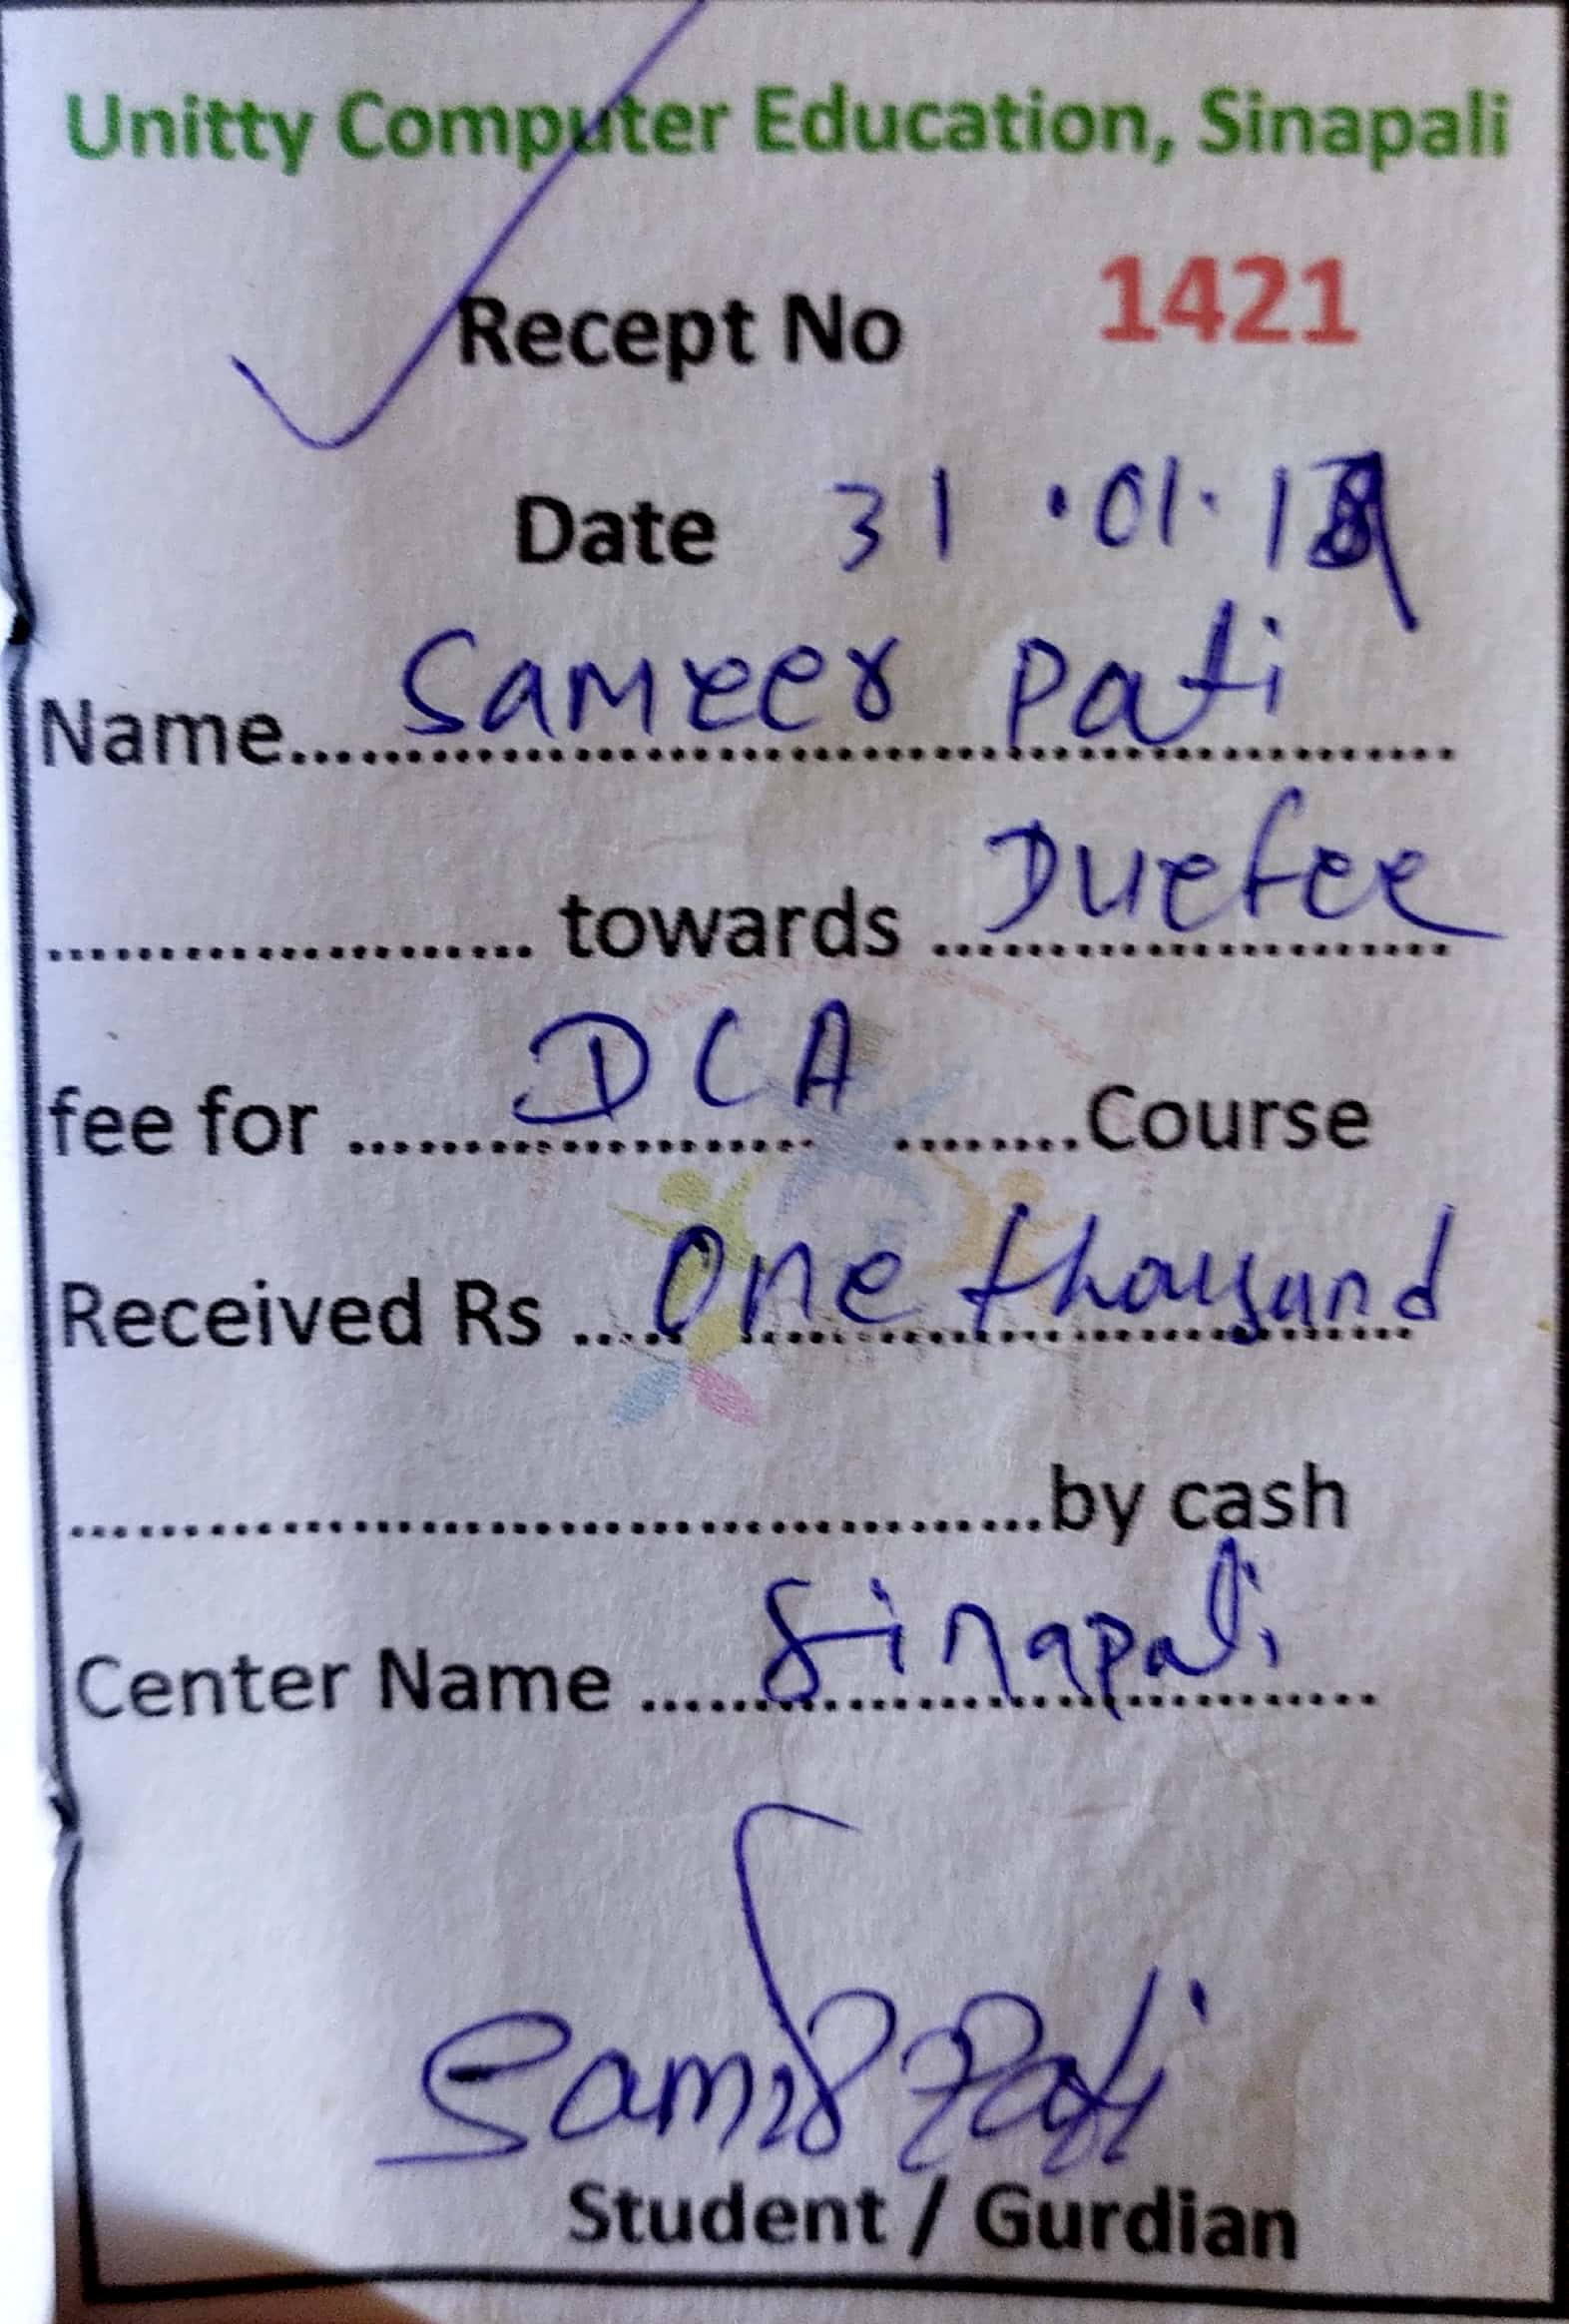 Unitty Computer Education, Sinapali
Recept No 1421
Date 31.01.
Name.......... Sameer Pati
.......... towards Duefee
fee for .......... DCA ..........Course
Received Rs .......... One thousand
..........by cash
Center Name .......... Sinapali
Pati
Student / Gurdian